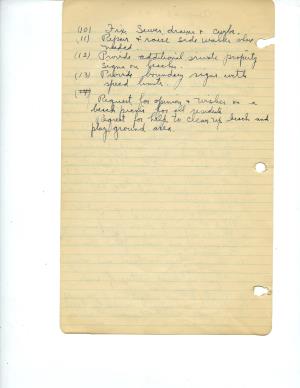 (10) Fix Sewer drains & curbs.
(11) Repair & raise side walks where
needed.
(12) Provide additional private property
signs on beaches.
(13) Provide boundary signs with
speed limits.
Request for opinions & wishes on a
beach for all
Request for help to clean up beach and
play ground area.